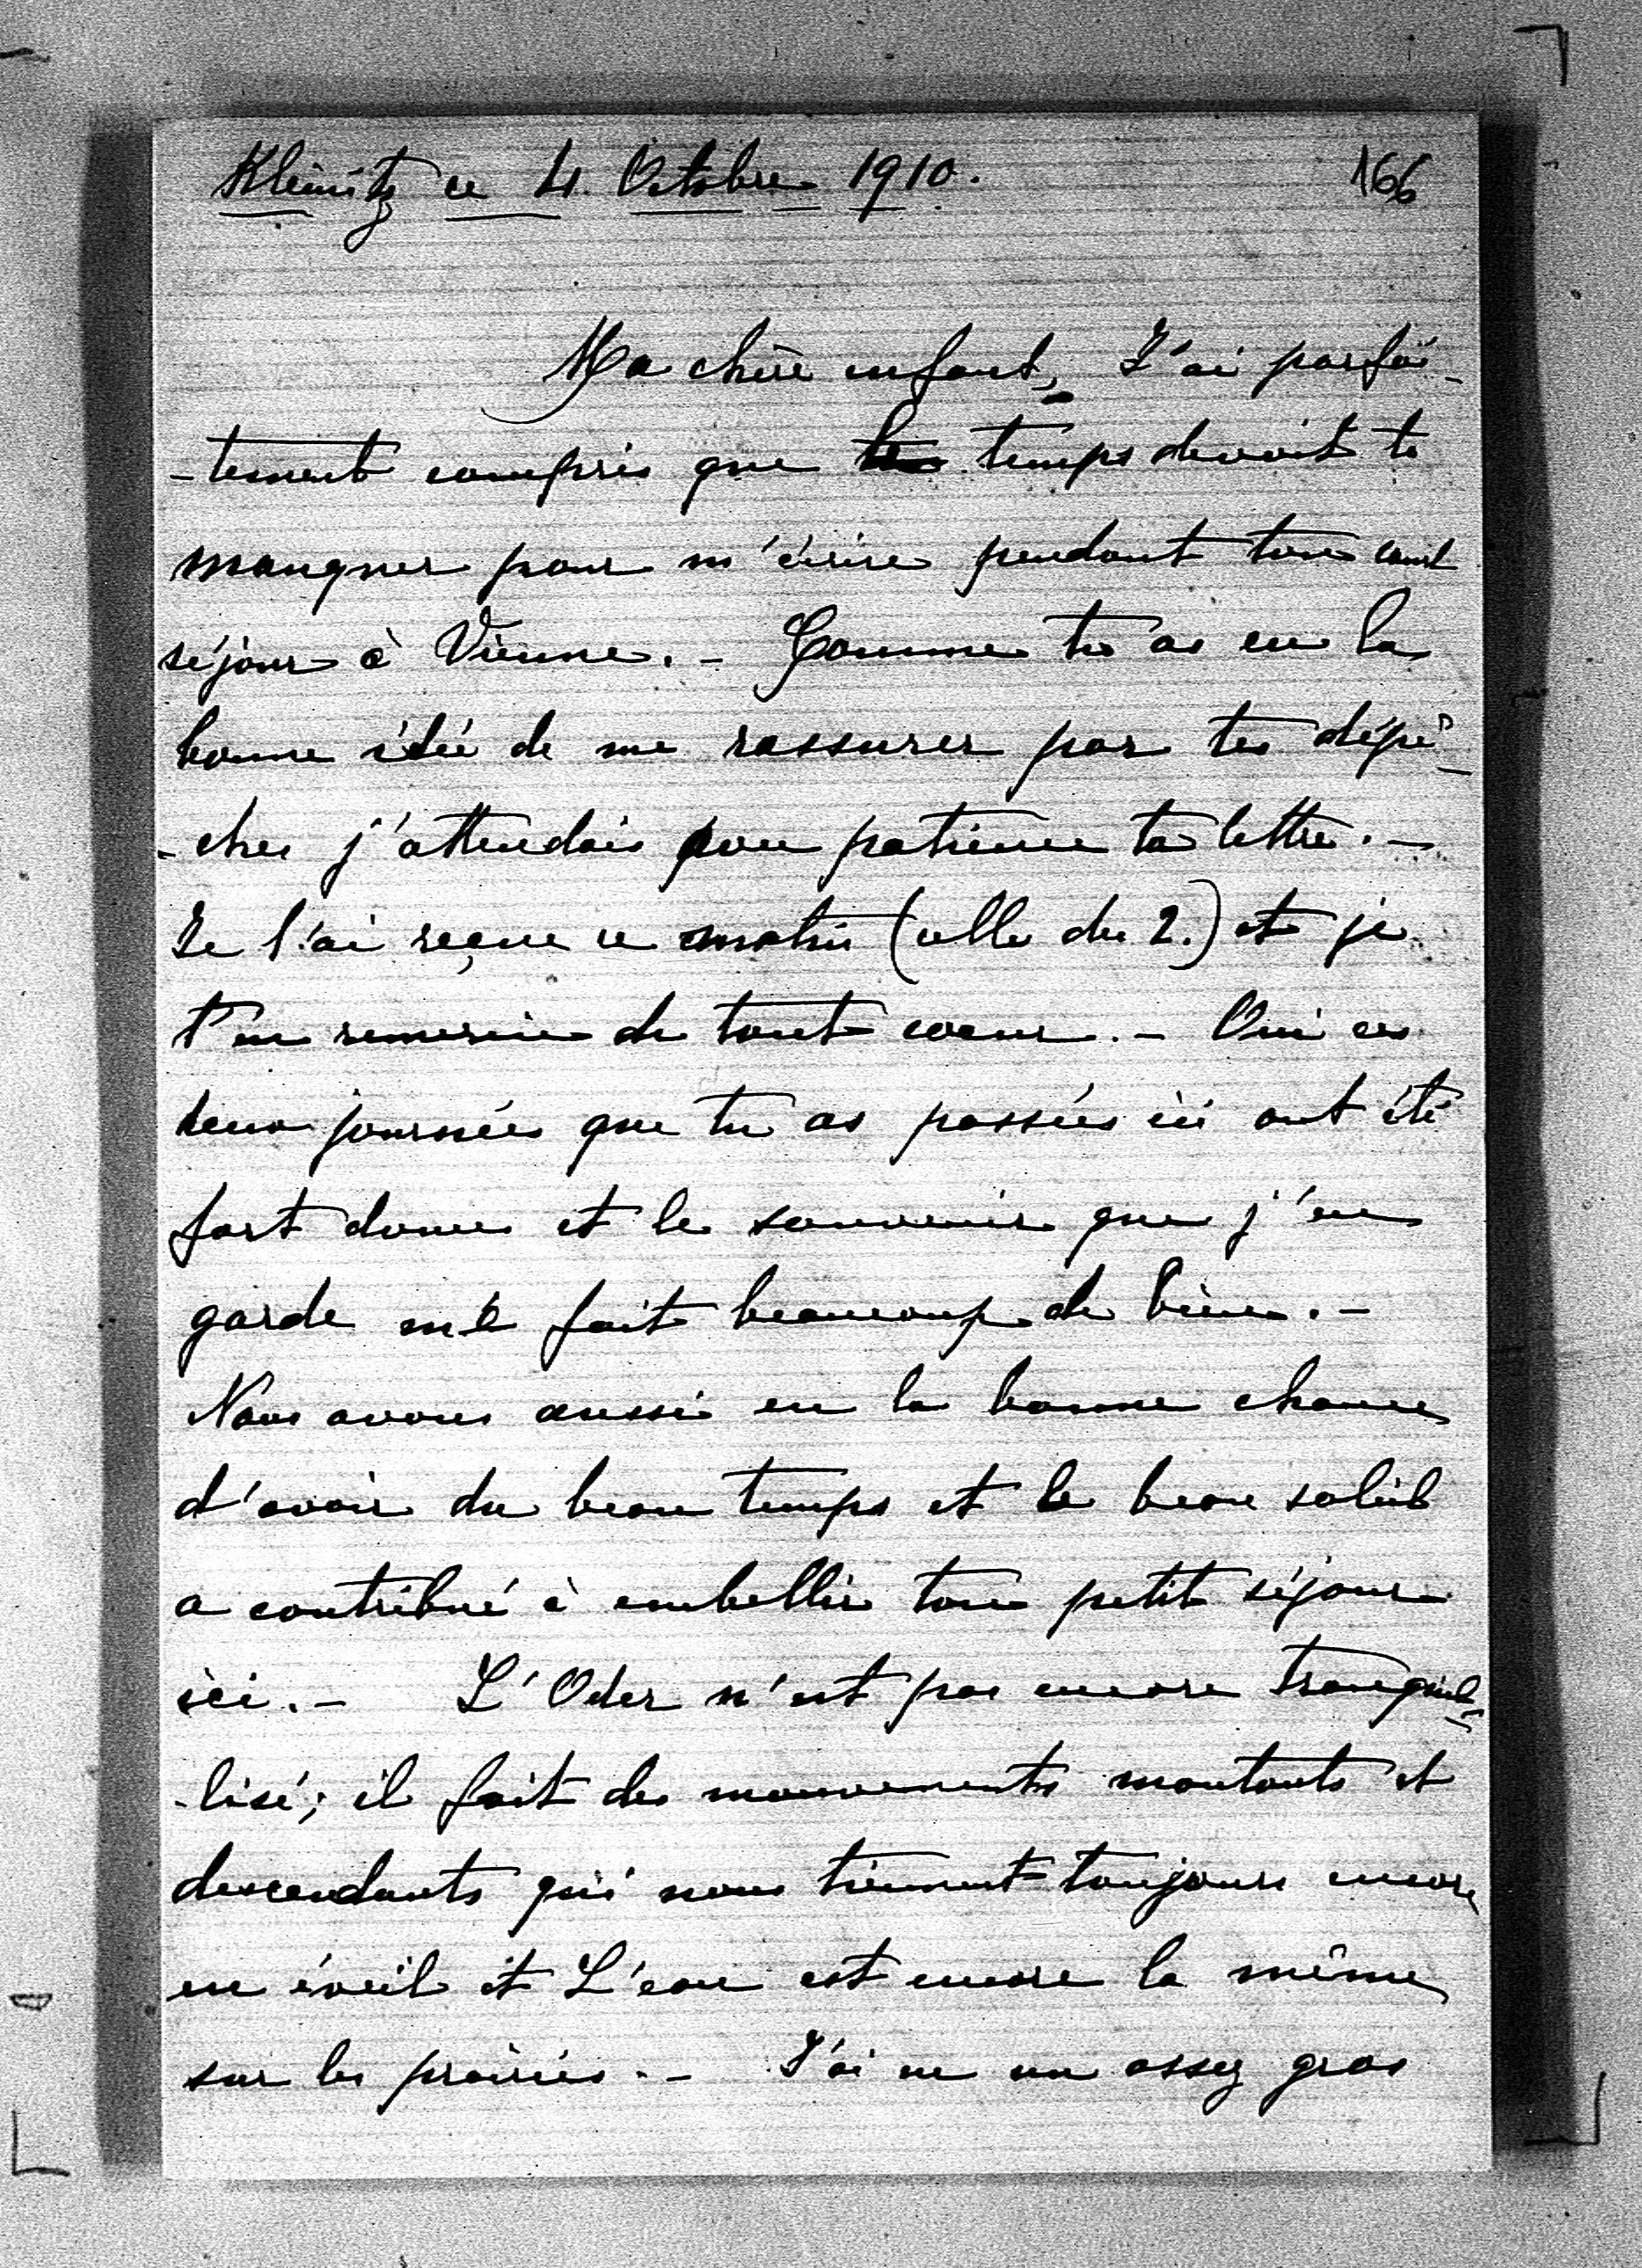 Kleinitz ce 4. Octobre 1910. 166
Ma chère enfant, J'ai parfai-
-tement compris que le temps devait te
manquer pour m'écrire pendant ton court
séjour à Vienne. - Comme tu as eu la
bonne idée de me rassurer par tes dépê-
-ches j'attendais avec patience ta lettre. -
Je l'ai reçue ce matin (celle du 2.) et je
t'en remercie de tout coeur. - Oui ces
deux journées que tu as passées ici ont été
fort douces et le souvenir que j'en
garde me fait beaucoup de bien. -
Nous avons aussi eu la bonne chance
d'avoir du beau temps et le beau soleil
a contribué à embellir ton petit séjour
ici. - L'Oder n'est pas encore tranquil-
-lisé; il fait des mouvements montants et
descendants qui nous tiennent toujours encore
en éveil et L'eau est encore la même
sur les prairies. - J'ai eu un assez gros